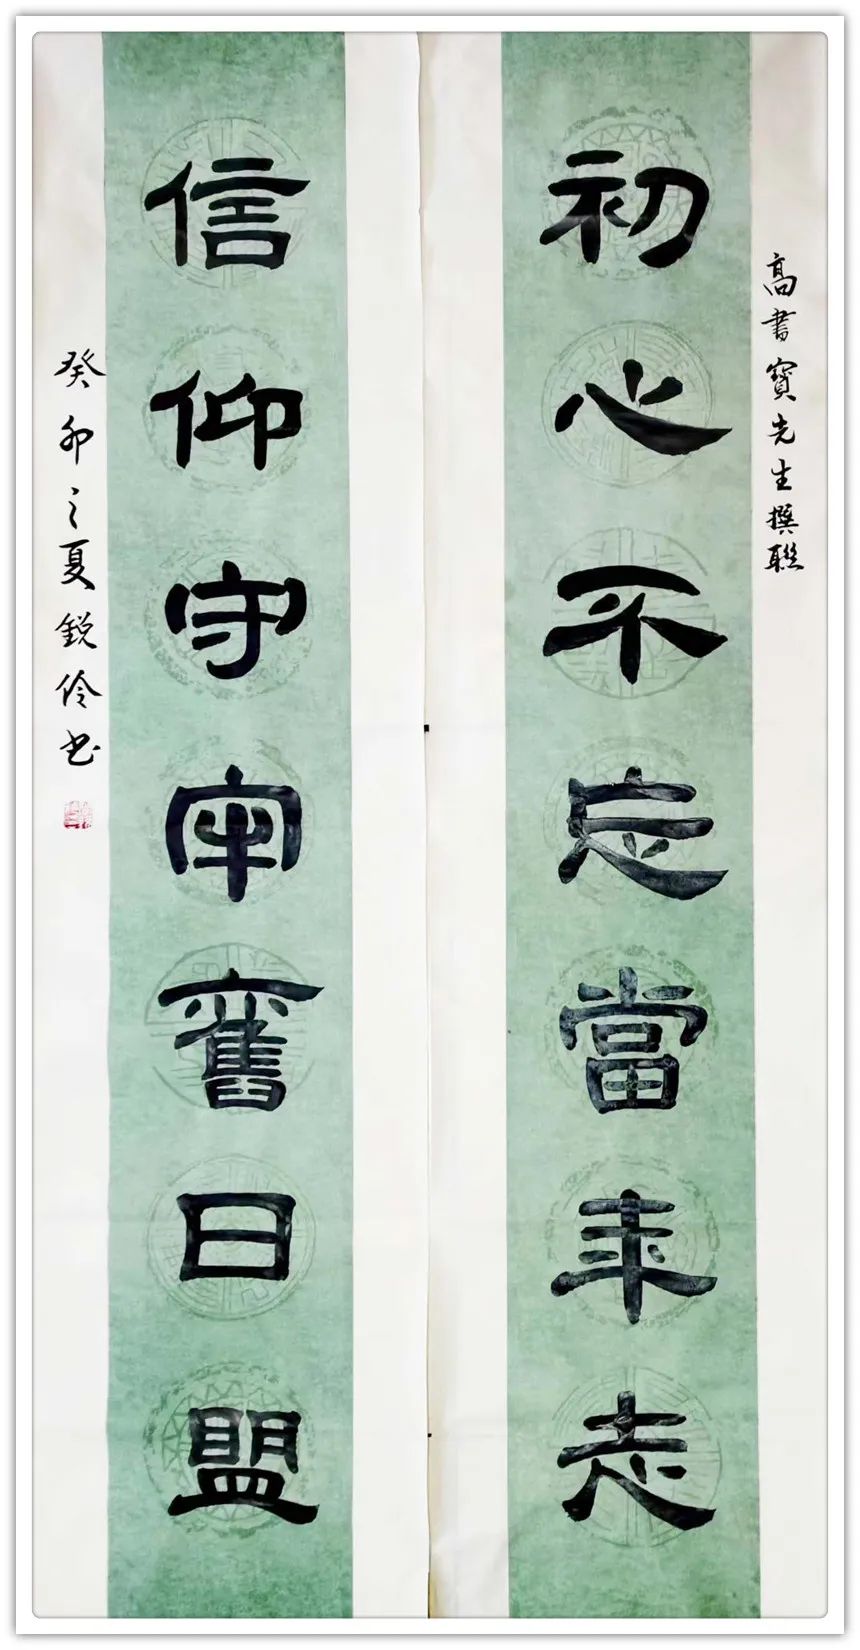 高書寶先生撰聯
初心不忘當年志
信仰守牢舊日盟
癸卯之夏銳伶书